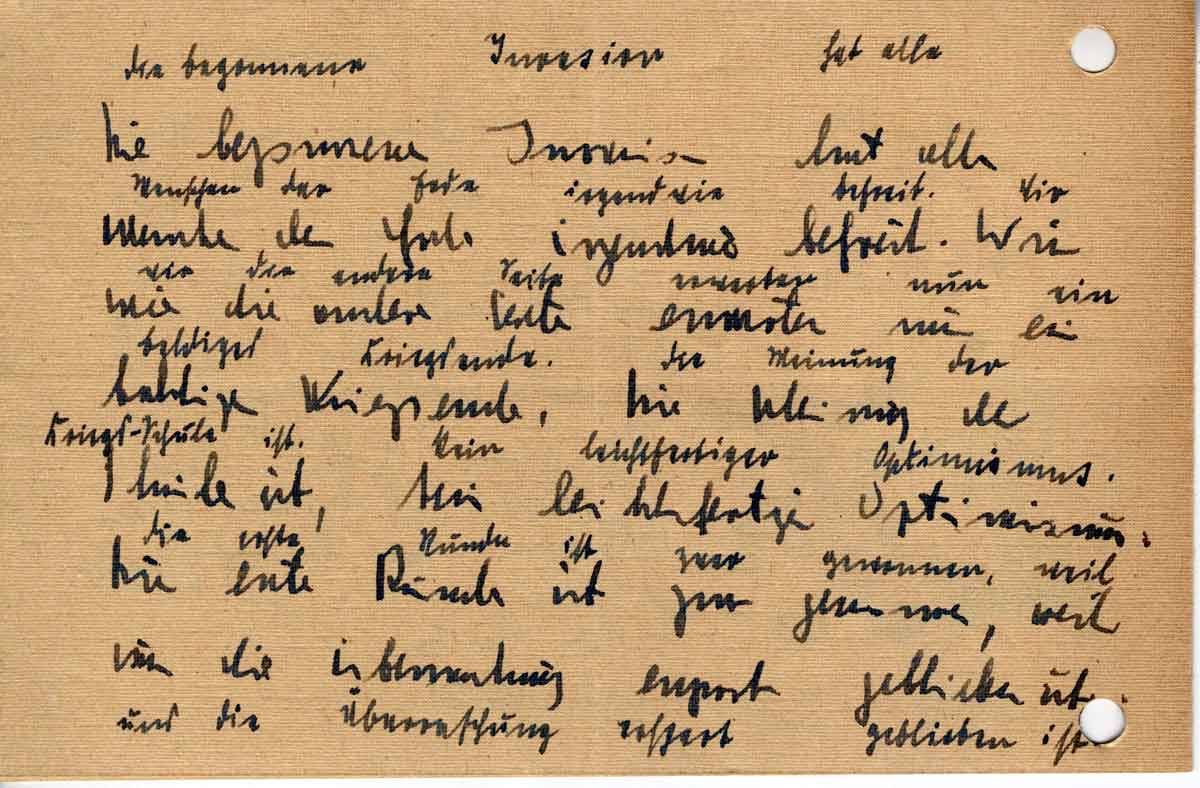 die begonnene Invasion hat alle
Die begonnene Invasion hat alle
Menschen der Erde irgendwie befreit. Wir
Mensche der Erde irgendwie befreit. Wir
wie die andere Seite erwarten nun ein
wie die andere Seite erwarten nun ein
baldiges Kriegsende. die Meinung der
baldige Kriegsende, Die Meinung der
Kriegs-Schule ist. Kein leichtfertiger Optimismus.
Schule ist, kein leichtfertige Optimismus.
die erste Runde ist zwar gewonnen, weil
Die erste Runde ist zwar gewonnen, weil
uns die Überraschung erspart geblieben ist.
uns die Überraschung erspart geblieben ist.